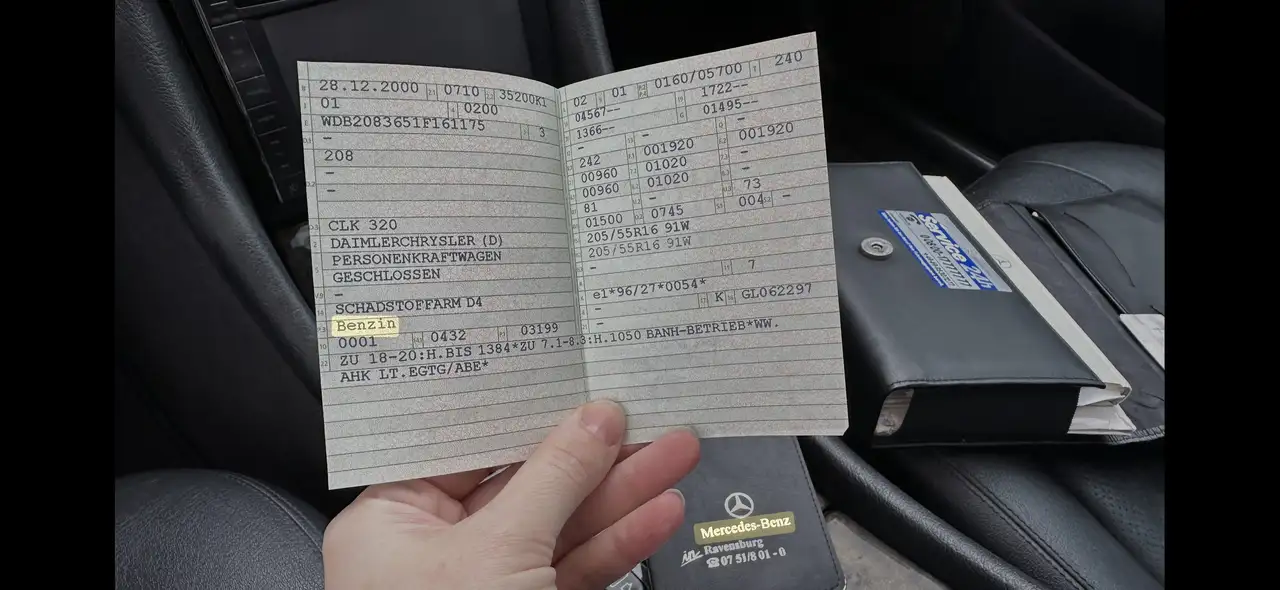 28.12.2000 0710 35200K1
01 0200
WDB2083651F161175 3
-
208
-
-
CLK 320
DAIMLERCHRYSLER (D)
PERSONENKRAFTWAGEN
GESCHLOSSEN
-
SCHADSTOFFARM D4
Benzin
0001 0432 03199
ZU 18-20:H.BIS 1384*ZU 7.1-8.3:H.1050 BANH-BETRIEB*WW.
AHK LT.EGTG/ABE*
02 01 0160/05700 240
04567-- 1722--
1366-- 01495--
- - -
242 001920 001920
00960 01020 -
00960 01020 -
81 - 73
01500 0745 004 -
205/55R16 91W
205/55R16 91W
- 7
e1*96/27*0054*
- K GL062297
-
Service 24h
Mercedes-Benz
Ravensburg
☎07 51/8 01-0